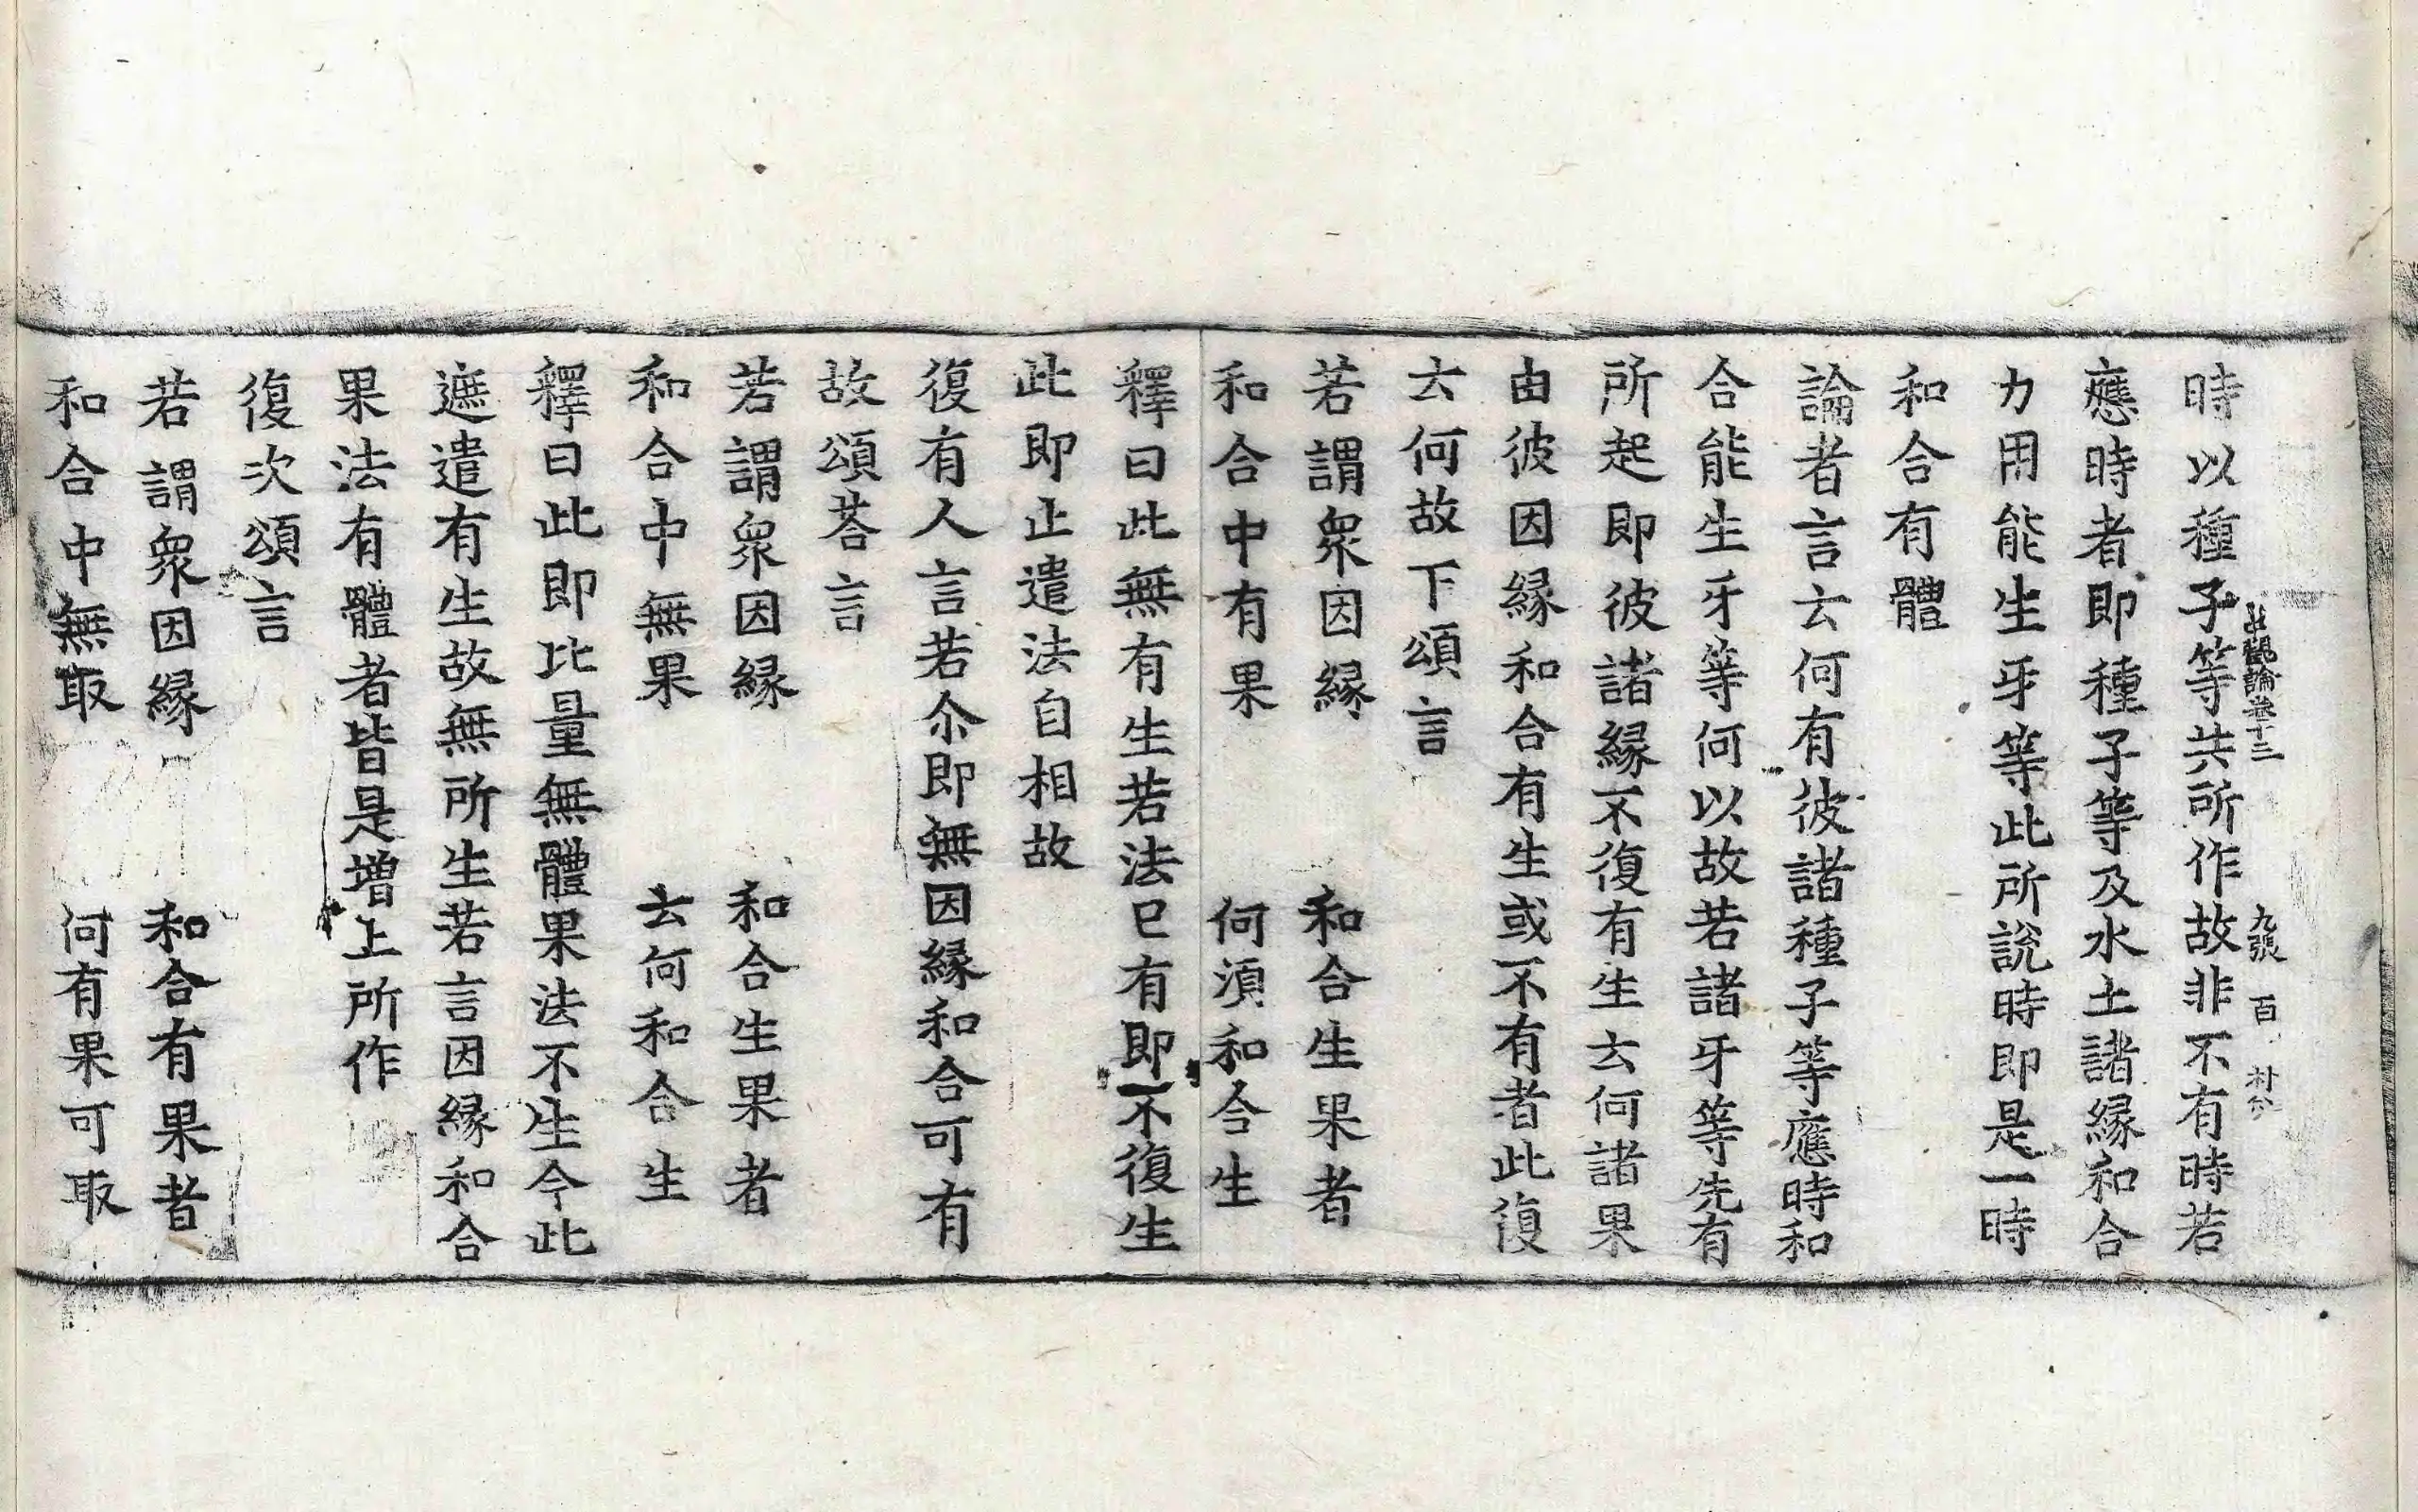 中觀論卷十三 九張 百
時以種子等共所作故非不有時若
應時者即種子等及水土諸緣和合
力用能生牙等此所說時即是一時
和合有體
論者言云何有彼諸種子等應時和
合能生牙等何以故若諸牙等先有
所起即彼諸緣不復有生云何諸果
由彼因緣和合有生或不有者此復
云何故下頌言
若謂衆因緣 和合生果者
和合中有果 何須和合生
釋曰此無有生若法已有即不復生
此即止遣法自相故
復有人言若尒即無因緣和合可有
故頌荅言
若謂衆因緣 和合生果者
和合中無果 云何和合生
釋曰此即比量無體果法不生今此
遮遣有生故無所生若言因緣和合
果法有體者皆是增上所作
復次頌言
若謂衆因緣 和合有果者
和合中無取 何有果可取